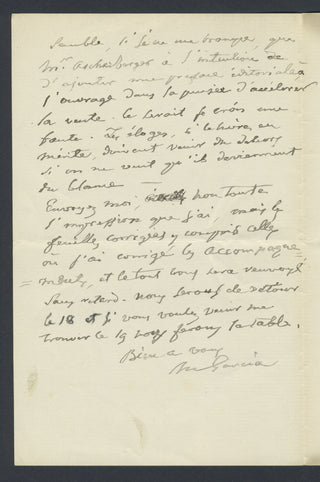 semble, si je ne me trompe, que
Mr. Ascherberger à l'intention de
d'ajouter une preface éditoriale à
l'ouvrage dans la pensée d'accélerer
la vente. Ce serait je crois une
faute. Les éloges, si le livre en
mérite, doivent venir du dehors
si on ne veut qu'ils deviennent
du blame —
Envoyez moi non toute
l'impression que j'ai, mais les
feuilles corrigées y compris celles
où j'ai corrigé les accompagne=
=ments, et le tout vous sera renvoyé
sans retard. Nous serons de retour
le 18 et si vous voulez venir me
trouver le 19 nous ferons la table.
Bien a vous
M Garcia